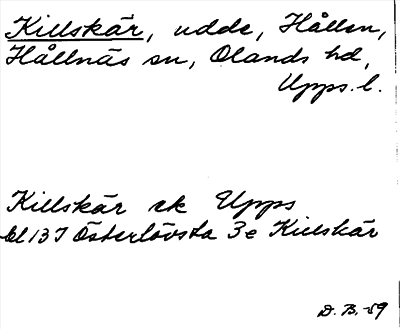 Killskär, udde, Hållen,
Hållnäs sn, Olands hd,
Upps. l.
Killskär ek Upps
bl 137 Österlövsta 3e Killskär
D. B. -59